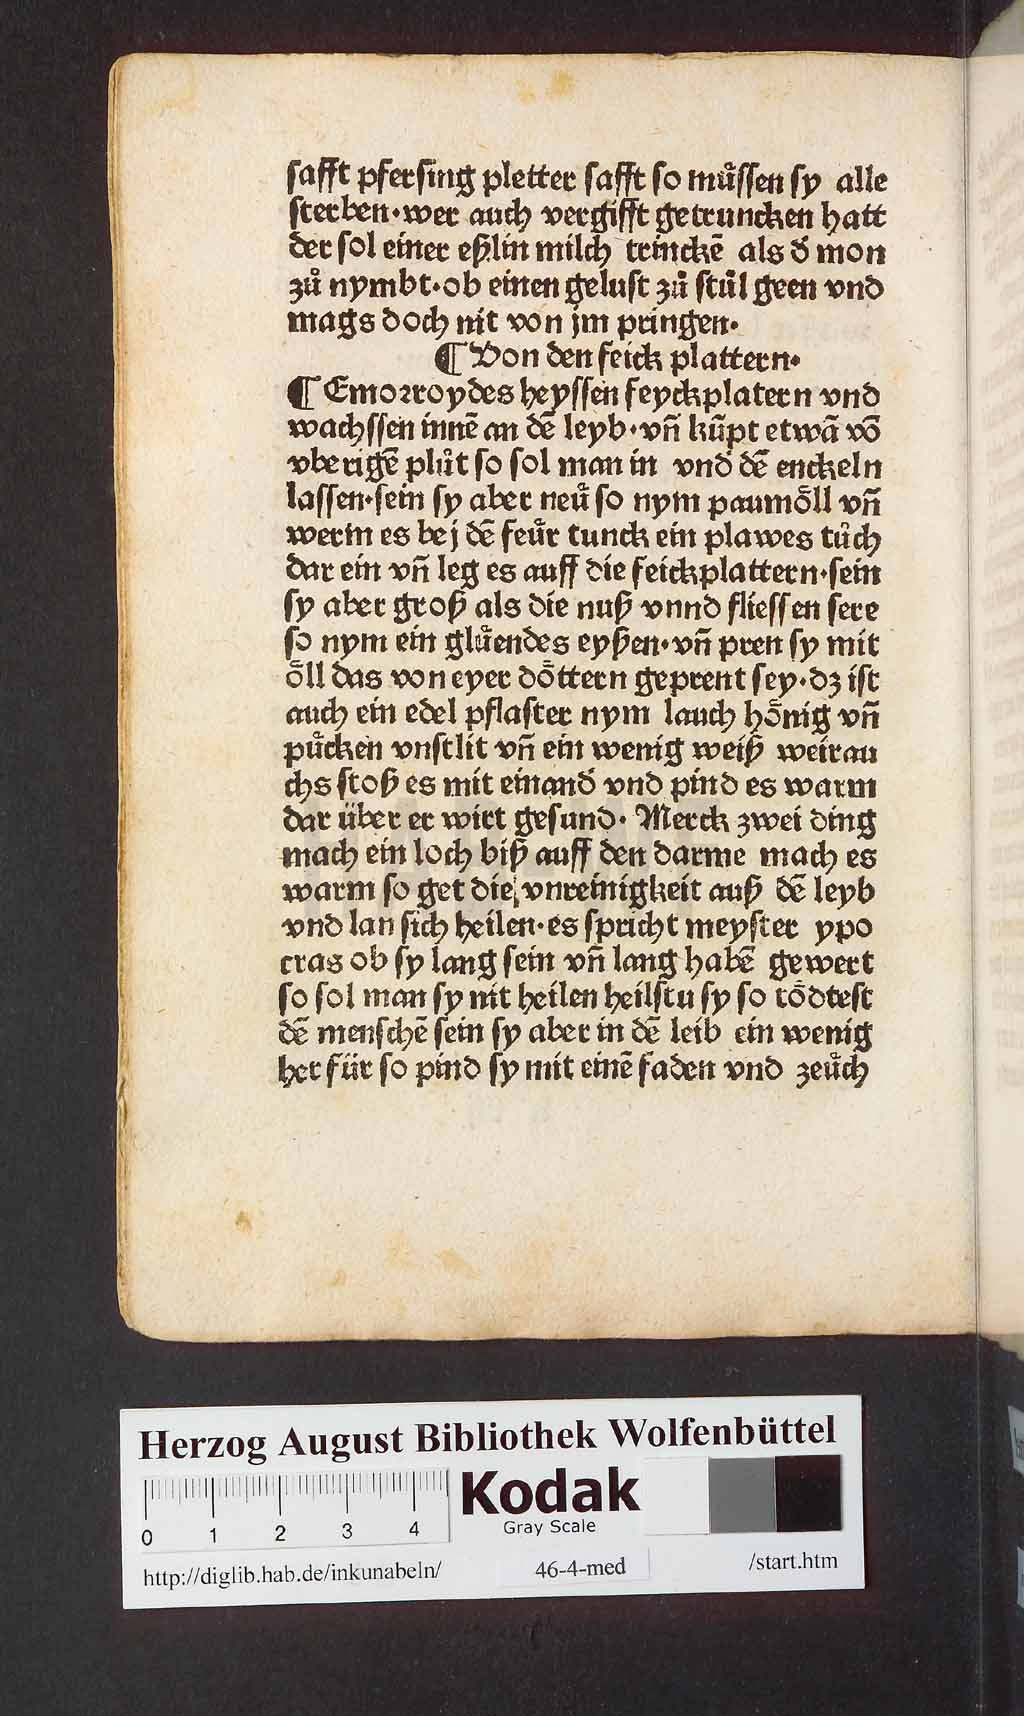 ſafft pferſing pletter ſafft ſo muͤſſen ſy alle
ſterben·wer auch vergifft getruncken hatt
der ſol einer eßlin milch trinckē als đ mon
zuͦ nymbt·ob einen geluſt zuͦ ſtuͦl geen vnd
mags doch nit von jm pringen·
¶ Von den feick plattern·
¶ Emoꝛroydes heyſſen feyckplatern vnd
wachſſen innē an dē leyb·vñ kūpt etwā vō
vberigē pluͦt ſo ſol man in vnd dē enckeln
laſſen·ſein ſy aber neuͤ ſo nym paumoͤll vñ
werm es bej dē feuͤr tunck ein plawes tuͦch
dar ein vñ leg es auff die feickplattern·ſein
ſy aber groß als die nuß vnnd flieſſen ſere
ſo nym ein gluͤendes eyßen·vñ pren ſy mit
oͤll das von eyer doͤttern geprent ſey·dz iſt
auch ein edel pflaſter nym lauch hoͤnig vñ
puͤcken vnſtlit vñ ein wenig weiß weirau
chs ſtoß es mit einanđ vnd pind es warm
dar über er wirt geſund· Merck zwei ding
mach ein loch biß auff den darme mach es
warm ſo get die vnreinigkeit auß dē leyb
vnd lan ſich heilen·es ſpricht meyſter ypo
cras ob ſy lang ſein vñ lang habē gewert
ſo ſol man ſy nit heilen heilſtu ſy ſo toͤdteſt
dē menſchē ſein ſy aber in dē leib ein wenig
her für ſo pind ſy mit einē faden vnd zeuͤch
Herzog August Bibliothek Wolfenbüttel
Kodak
Gray Scale
0 1 2 3 4
http://diglib.hab.de/inkunabeln/ 46-4-med /start.htm